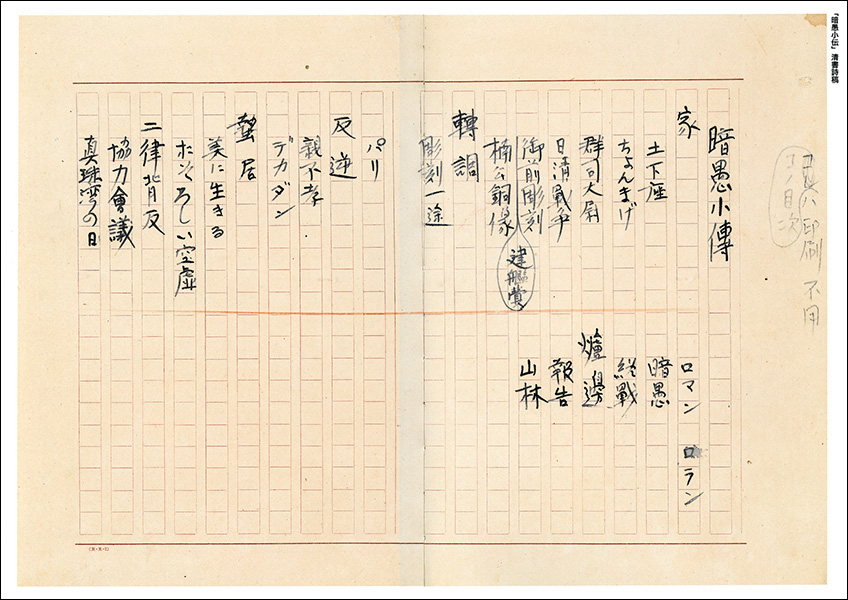 「暗愚小伝」清書詩稿
コノ目次
印刷不用
暗愚小傳
家
土下座
ちよんまげ
郡司大尉
日清戰爭
御前彫刻
建艦費
楠公銅像
轉調
彫刻一途
パリ
反逆
親不孝
デカダン
蟄居
美に生きる
おそろしい空虚
二律背反
協力會議
真珠湾の日
ロマン ロラン
暗愚
終戰
爐邊
報告
山林